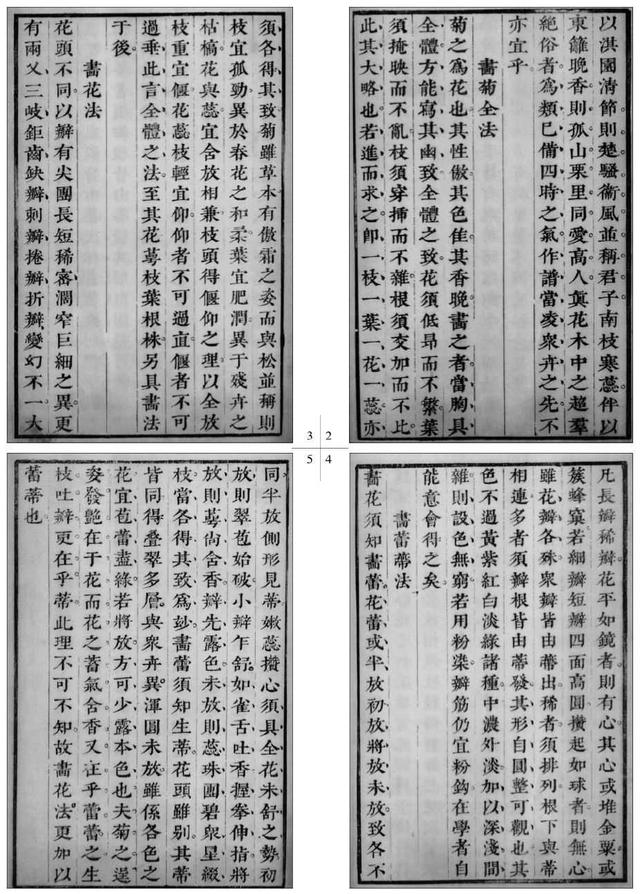 以淇園清節則楚騷衞風並稱君子南枝寒蕊伴以
東籬晩香則孤山栗里同愛高人眞花木中之超羣
絶俗者爲類已備四時之氣作譜當凌衆卉之先不
亦宜乎
畫菊全法
菊之爲花也其性傲其色佳其香晚畫之者當胸具
全體方能寫其幽致全體之致花須低昂而不繁葉
須掩映而不亂枝須穿揷而不雜根須交加而不比
此其大略也若進而求之卽一枝一葉一花一蕊亦
2
須各得其致菊雖草本有傲霜之姿而與松並稱則
枝宜孤勁異於春花之和柔葉宜肥潤異于殘卉之
枯槁花與蕊宜舍放相兼枝頭得偃仰之理以全放
枝重宜偃花蕊枝輕宜仰仰者不可過直偃者不可
過垂此言全體之法至其花萼枝葉根株另具畫法
于後
畫花法
花頭不同以瓣有尖團長短稀審濶窄巨細之異更
有兩乂三岐鉅齒缺瓣刺瓣捲瓣折瓣變幻不一大
3
凡長瓣稀瓣花平如鏡者則有心其心或堆金粟或
簇蜂窠若細瓣短瓣四面高圓攢起如球者則無心
雖花瓣各殊衆瓣皆由蒂出稀者須排列根下與蒂
相連多者須瓣根皆由蒂發其形自圓整可觀也其
色不過黃紫紅白淡綠諸種中濃外淡加以深淺間
雜則設色無窮若用粉染瓣筋仍宜粉鈎在學者自
能意會得之矣
畫蕾蒂法
畫花須知畫蕾花蕾或半放初放將放未放致各不
4
同半放側形見蒂嫩蕊攢心須具全花未舒之勢初
放則翠苞始破小瓣乍舒如雀舌吐香握拳伸指將
放則萼尙舍香瓣先露色未放則蕊珠團碧衆星綴
枝當各得其致爲玅畫蕾須知生蒂花頭雖別其蒂
皆同得叠翠多層與衆卉異渾圓未放雖係各色之
花宜苞蕾盡綠若將放方可少露本色也夫菊之逞
姿發艷在于花而花之蓄氣舍香又在乎蕾蕾之生
枝吐瓣更在乎蒂此理不可不知故畫花法更加以
蕾蒂也
5